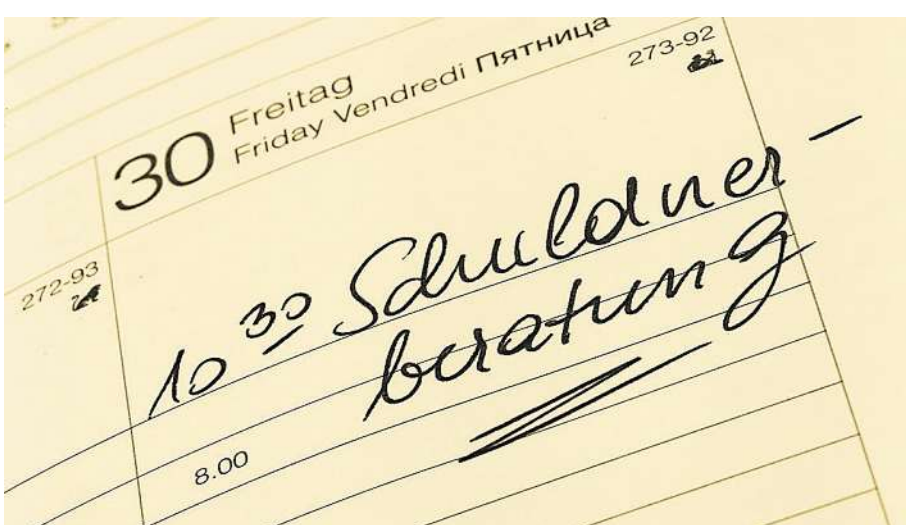 30 Freitag
Friday Vendredi Пятница
273-92
272-93
10 30 Schuldner-
beratung
8.00